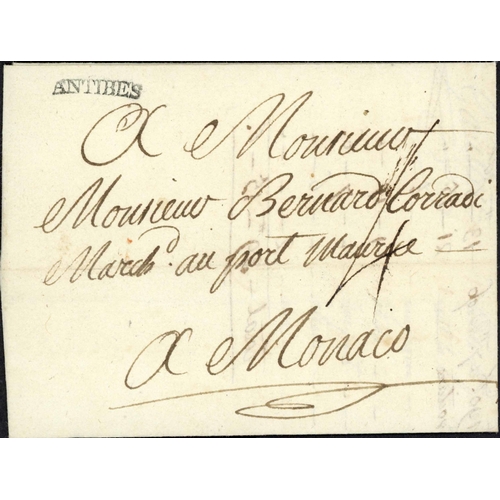 ANTIBES
A Monsieur
Monsieur Bernard Corradi
March.d au port Maurice
A Monaco